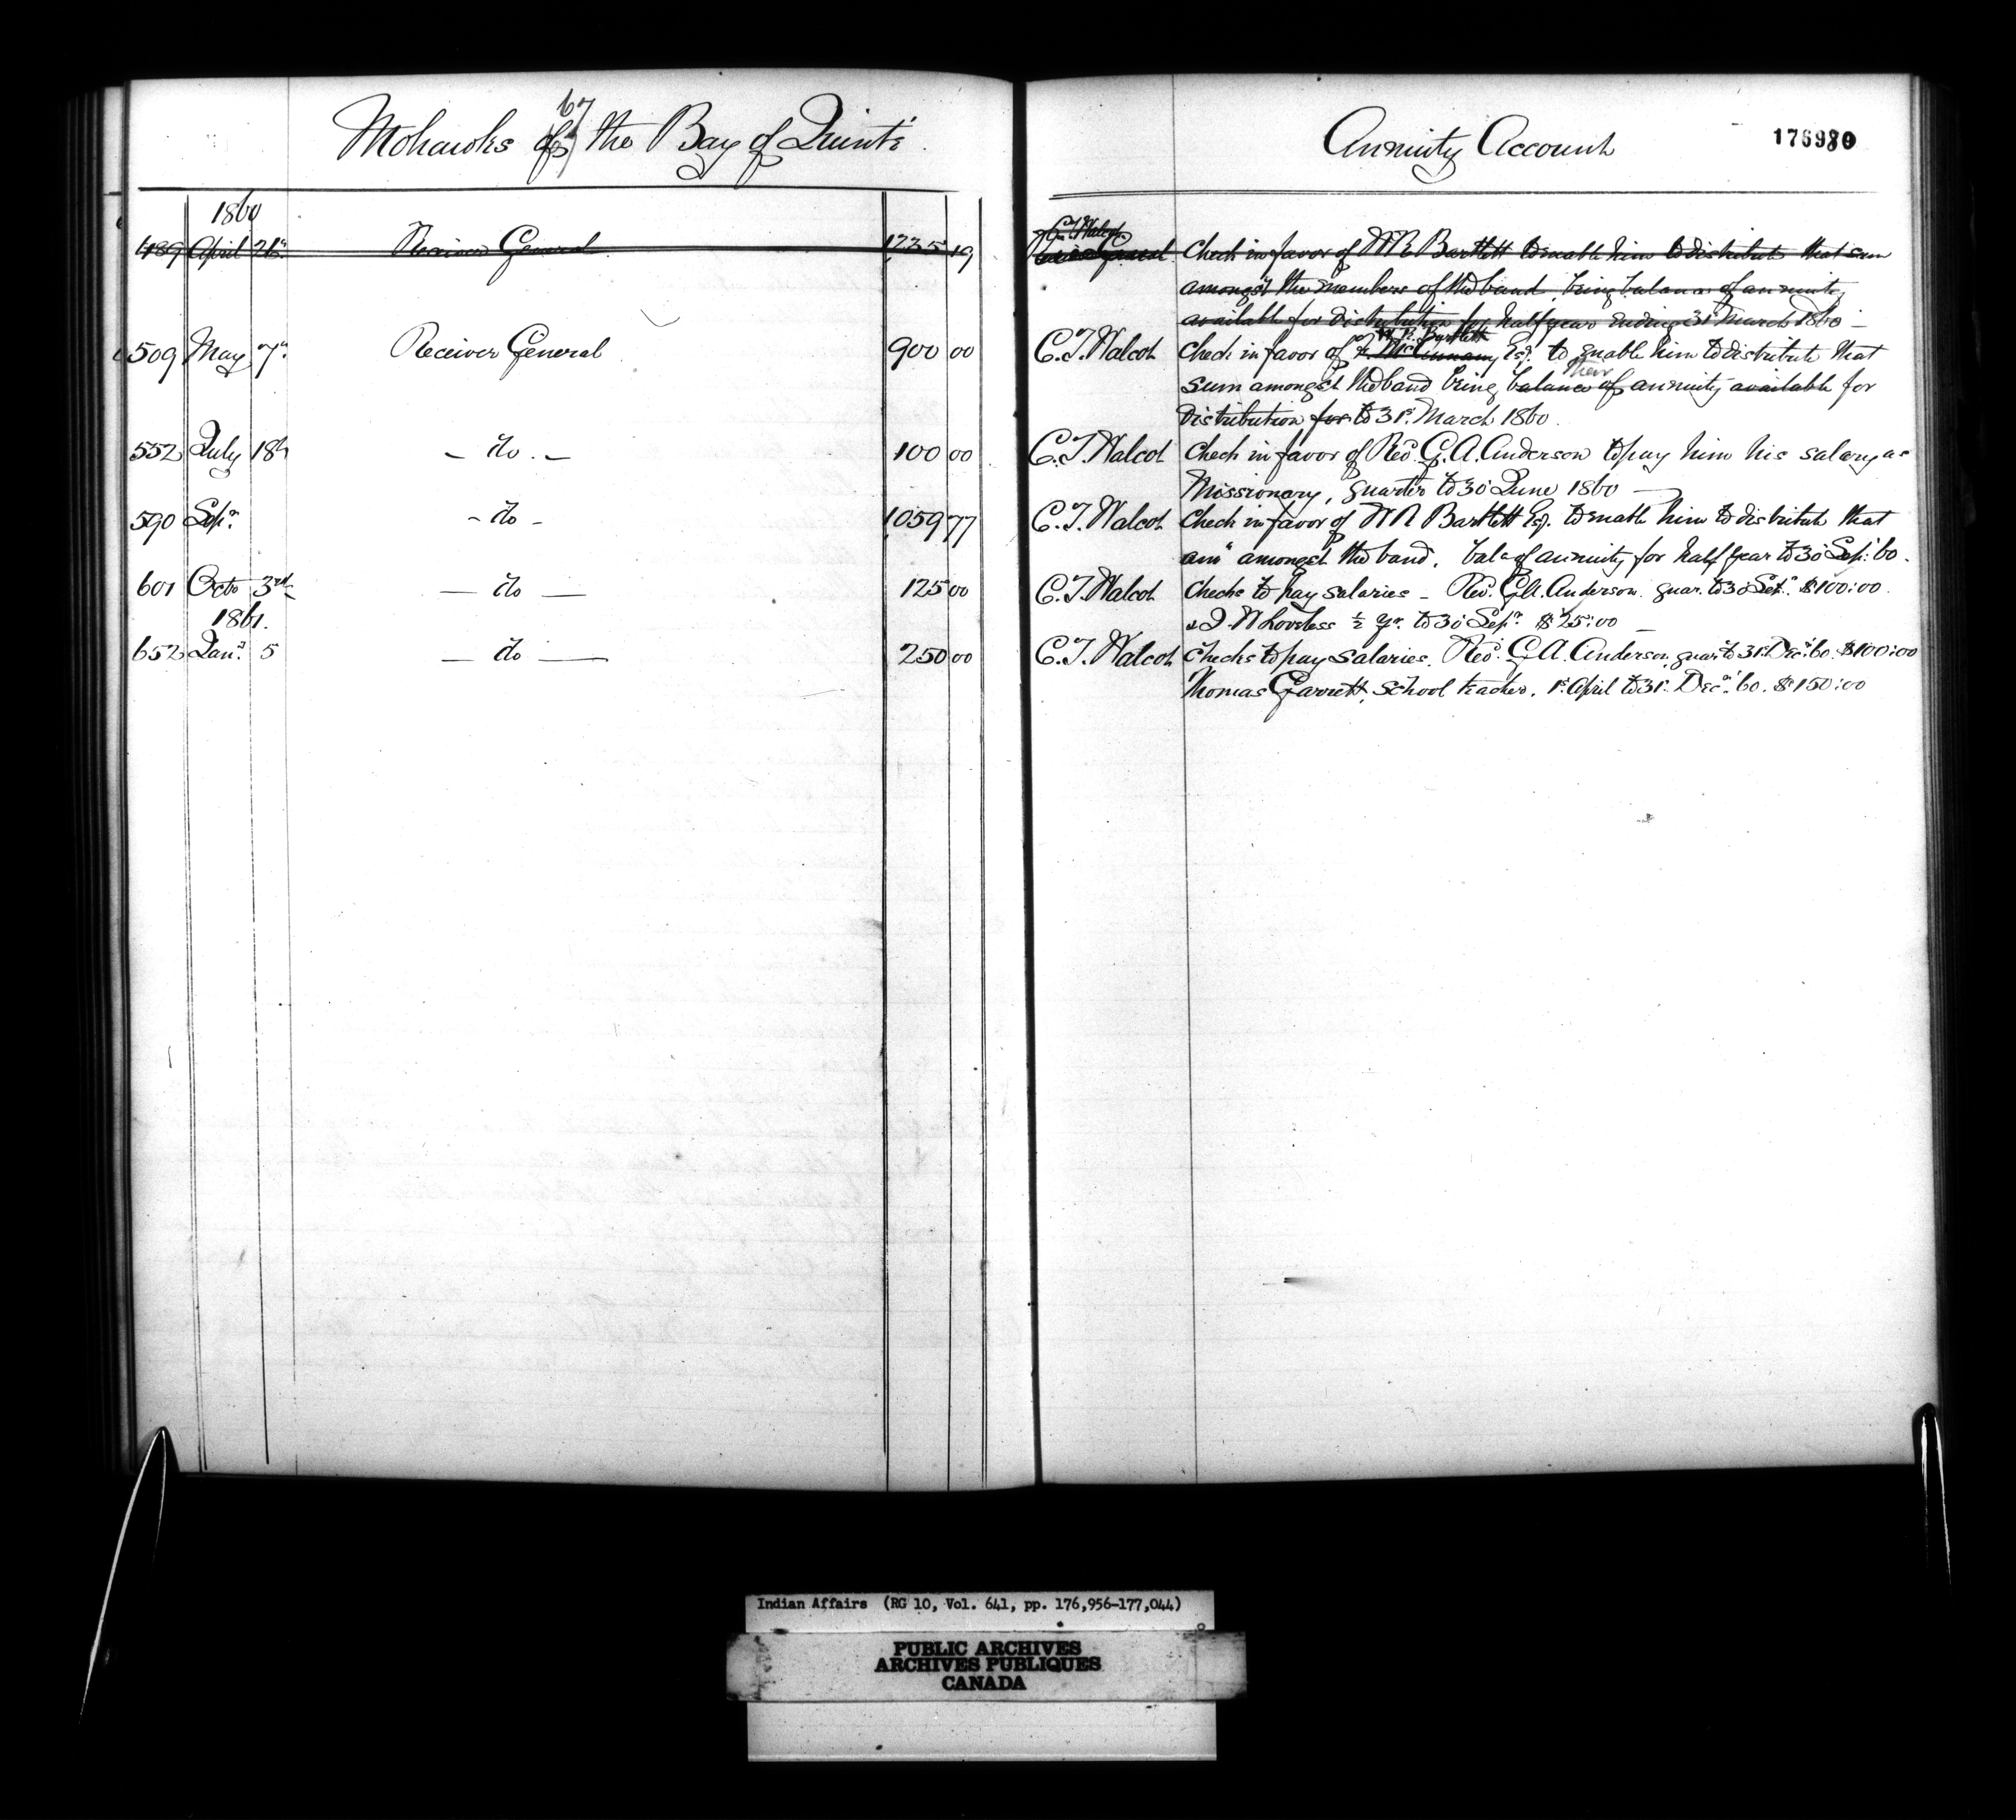 67
Mohawks of the Bay of Quinté
Annuity Account
176980
1860
489 April 21st Receiver General 1235 19 C.T. Walcot Check in favor of W R Bartlett to enable him to distribute that sum
amongst the members of the band, being balance of annuity
available for distribution for half year ending 31st March 1860 —
509 May 7th Receiver General 900 00 C.T. Walcot Check in favor of W. R. Bartlett Esq. to enable him to distribute that
sum amongst the band being balance of their annuity available for
distribution for to 31st March 1860.
552 July 18th — do. — 100 00 C.T. Walcot Check in favor of Revd. G. A. Anderson to pay him his salary as
Missionary, quarter to 30 June 1860 —
590 Sepr. - do - 1059 77 C.T. Walcot Check in favor of W R Bartlett Esq. to enable him to distribute that
amt amongst the band, bal. of annuity for half year to 30 Sep: 60.
601 Octo 3rd — do — 125 00 C.T. Walcot Checks to pay salaries — Rev. G.A. Anderson. quar. to 30 Sepr. $100:00.
& J. W Loveless ½ yr. to 30 Sepr. $25:00 —
1861.
652 Jany. 5 — do — 250 00 C.T. Walcot Checks to pay salaries, Revd. G A. Anderson, quar to 31st Decr. 60. $100:00
Thomas Garrett, School teacher, 1st April to 31st. Decr. 60. $150:00
Indian Affairs (RG 10, Vol. 641, pp. 176,956-177,044)
PUBLIC ARCHIVES
ARCHIVES PUBLIQUES
CANADA